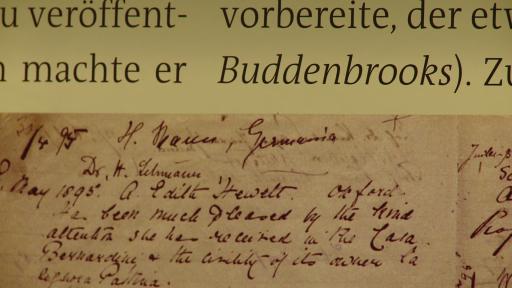 u veröffent-
n machte er
vorbereite, der etw
Buddenbrooks). Zu
/4 95 H. Mann, Germania
Dr. H. Lehmann
May 1895. A. Edith Hewett. Oxford.
Has been much pleased by the kind
attention she has received in the Casa
Bernardini & the civility of its owner la
Signora Pastina.